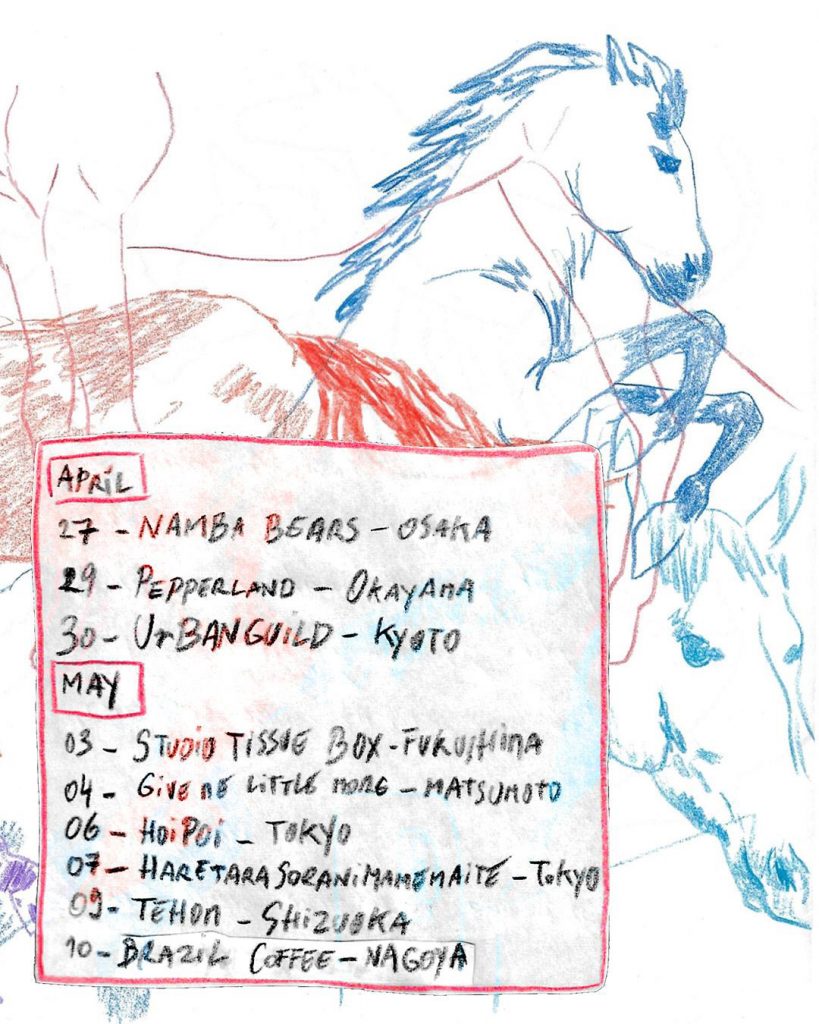 APRIL
27 - NAMBA BEARS - OSAKA
29 - PEPPERLAND - OKAYAMA
30 - UrBANGUILD - KYOTO
MAY
03 - STUDIO TISSUE BOX - FUKUSHIMA
04 - GIVE ME LITTLE MORE - MATSUMOTO
06 - HOIPOI - TOKYO
07 - HARETARASORANIMAMEMAITE - TOKYO
09 - TEHOM - SHIZUOKA
10 - BRAZIL COFFEE - NAGOYA